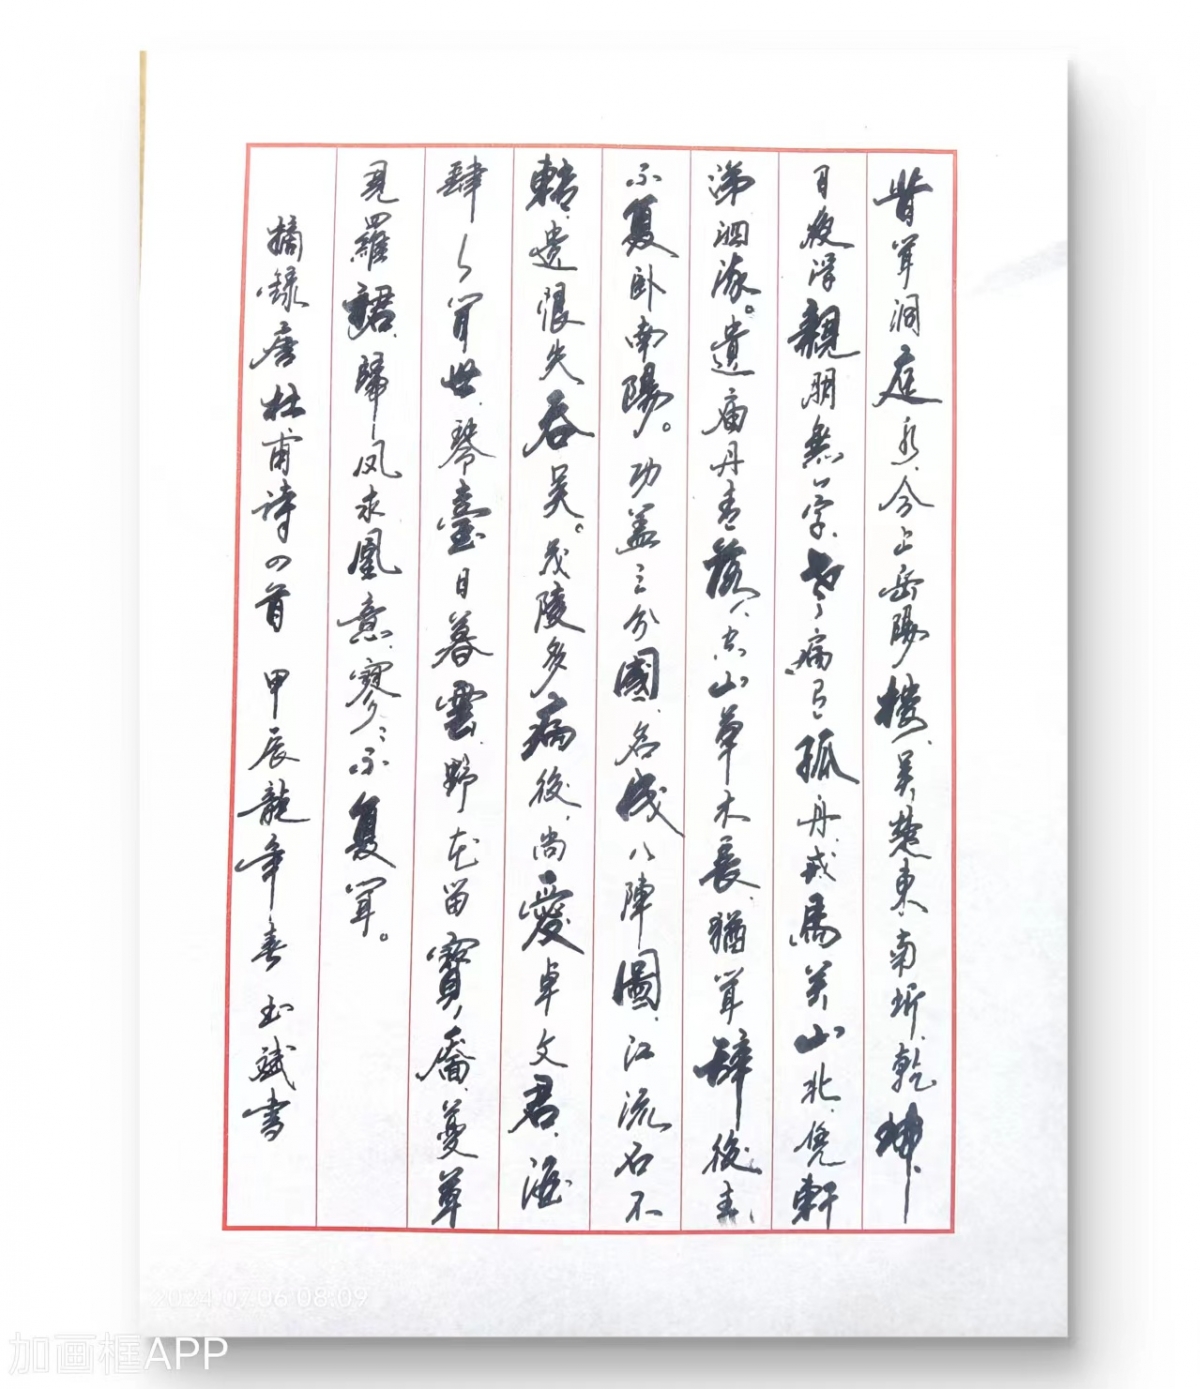 昔闻洞庭水、今上岳陽楼、吴楚東南坼、乾坤
日夜浮、親朋無一字、老病有孤舟、戎馬关山北、凭軒
涕泗流。遺庙丹青落、空山草木長、猶闻辞後主、
不复卧南陽。功盖三分國、名成八陣圖、江流石不
轉、遺恨失吞吴。茂陵多病後、尚愛卓文君、酒
肆人间世、琴臺日暮雲、野花留寶靥、蔓草
見羅裙、歸凤求凰意、寥寥不复闻。
摘録唐杜甫诗四首 甲辰龍年春 玉斌书
2024.07.06 08:09
加画框APP